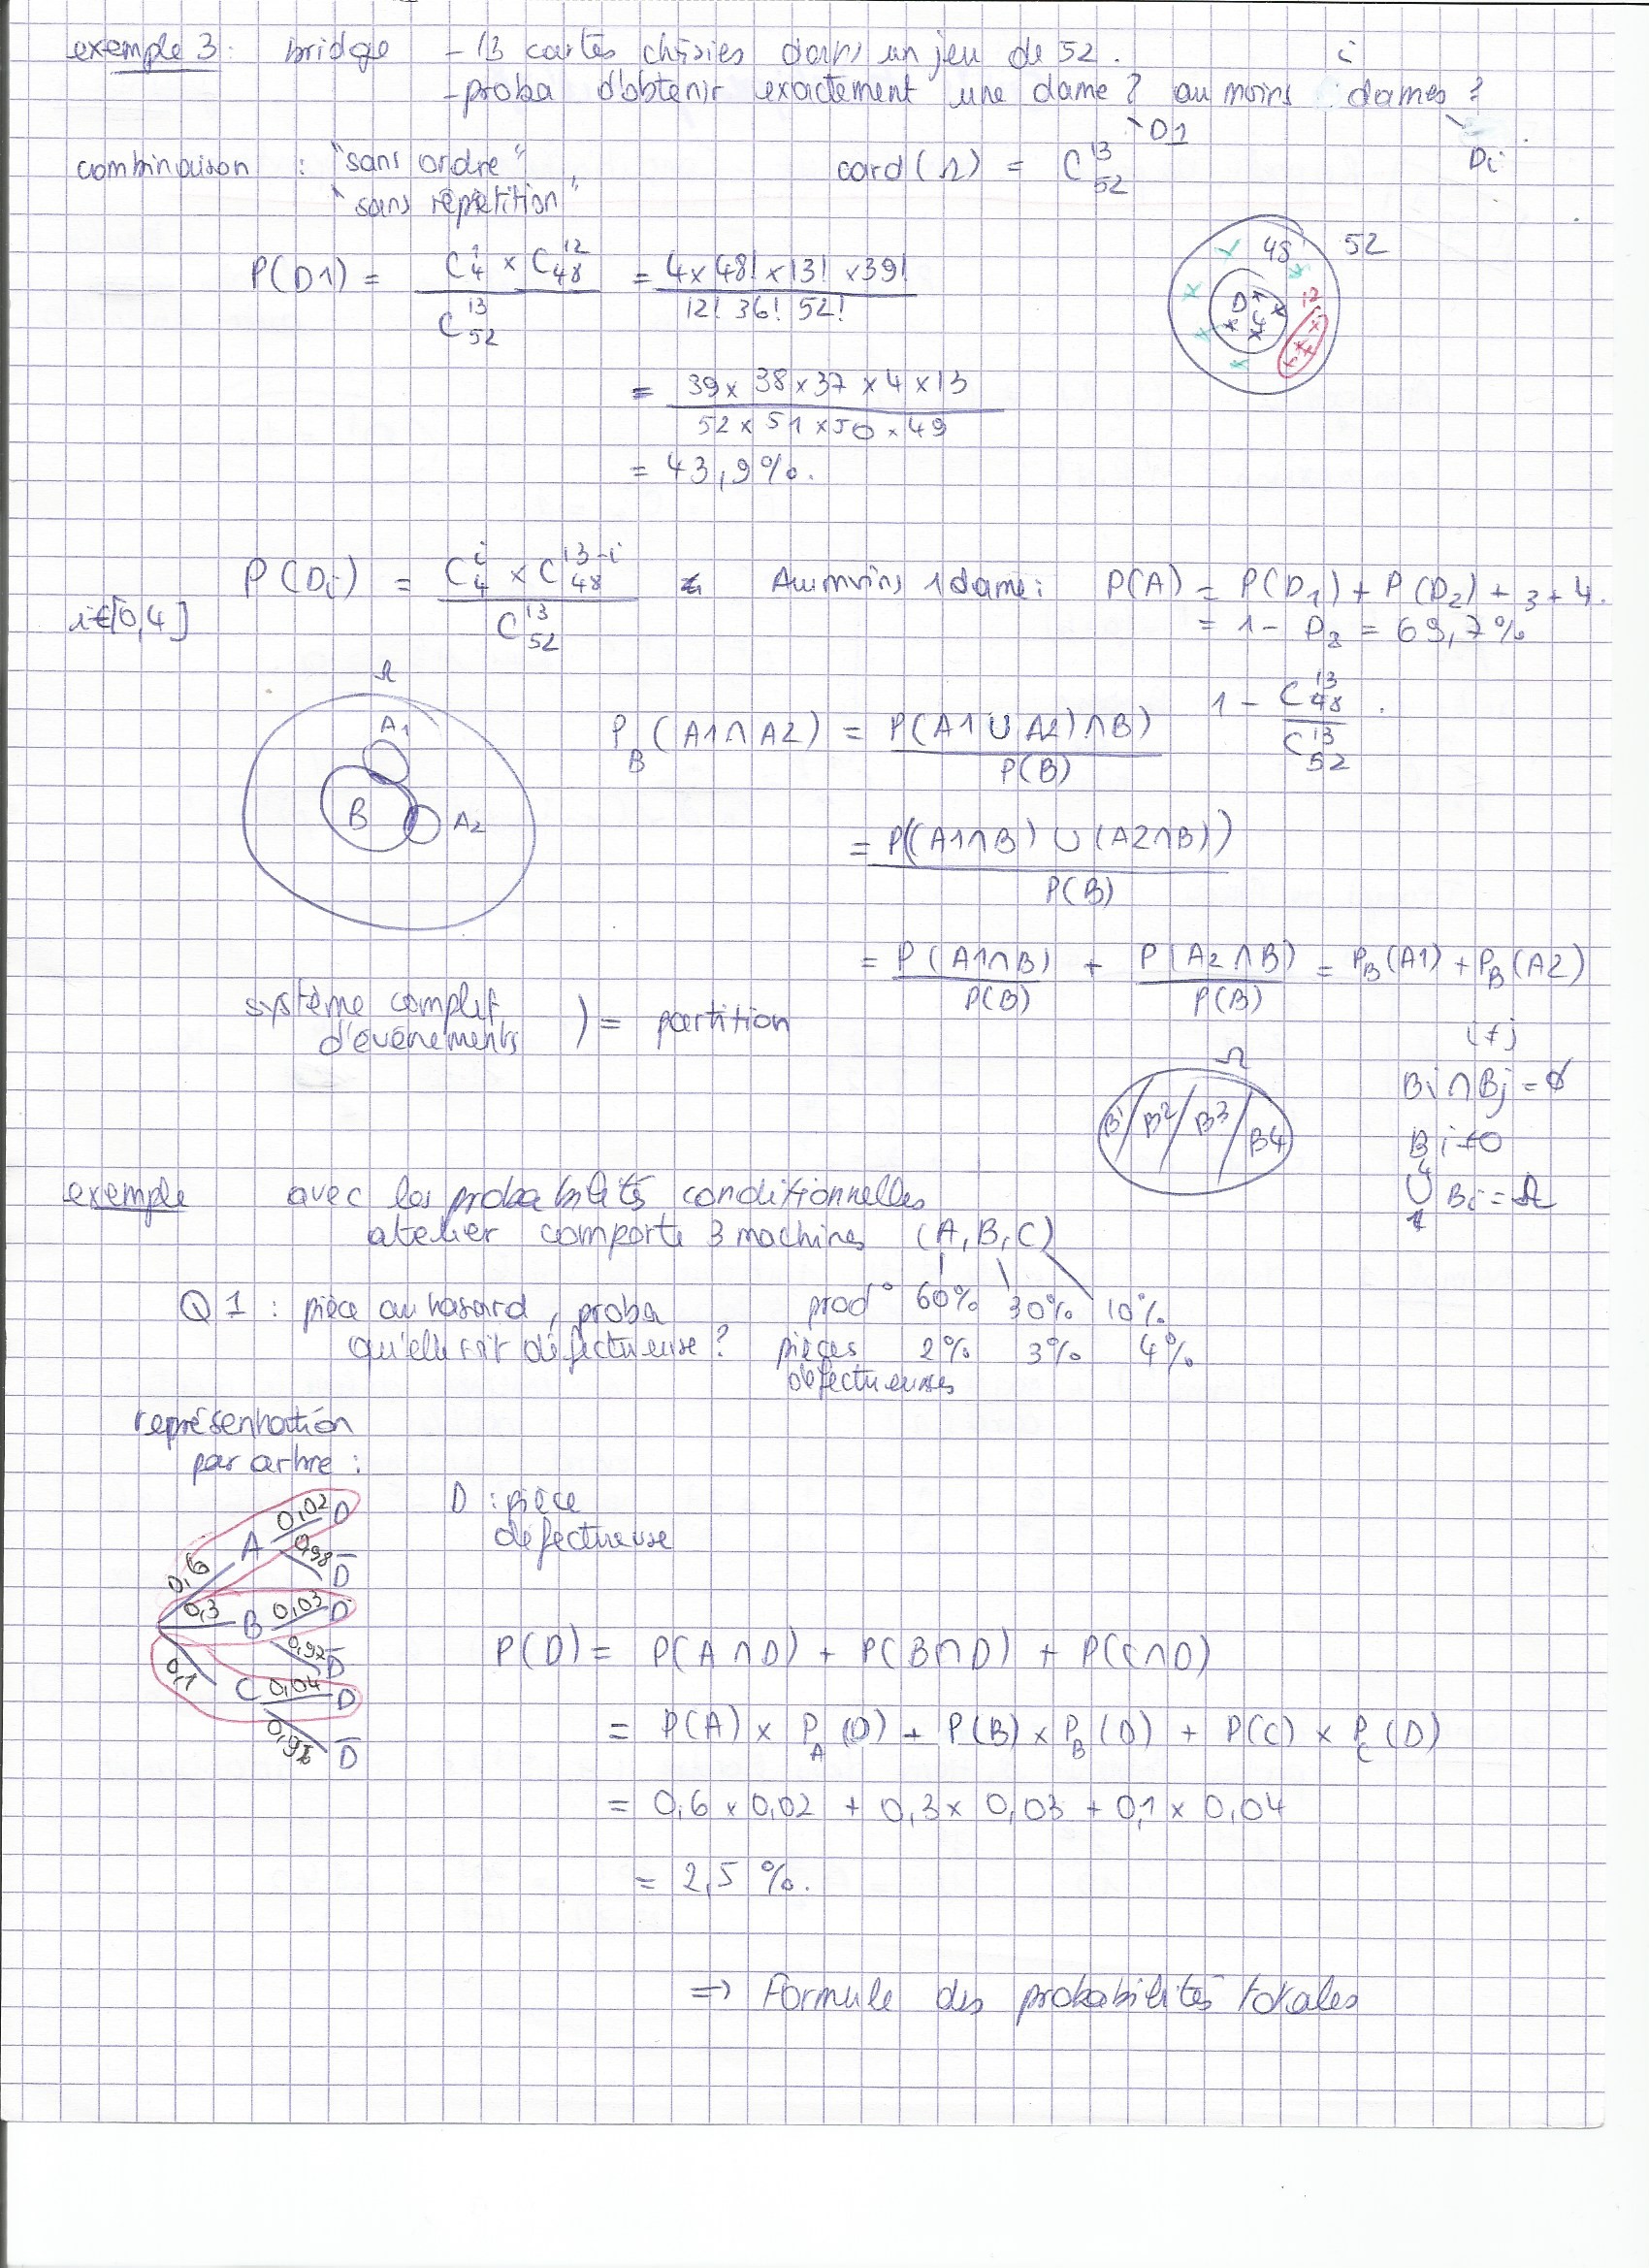 exemple 3 : bridge - 13 cartes choisies dans un jeu de 52.
- proba d'obtenir exactement une dame ? au moins i dames ?
D1
Di
combinaison : "sans ordre"
"sans répétition"
card(Ω) = C_52^13
48 52
D 4
12
P(D1) = (C_4^1 × C_48^12) / C_52^13 = (4 × 48! × 13! × 39!) / (12! 36! 52!)
= (39 × 38 × 37 × 4 × 13) / (52 × 51 × 50 × 49)
= 43,9%.
P(Di) = (C_4^i × C_48^(13-i)) / C_52^13
i∈[0,4]
Au moins 1 dame : P(A) = P(D1) + P(D2) + 3 + 4.
= 1 - D_0 = 69,7%
1 - C_48^13 / C_52^13 .
Ω
A1
B
A2
P_B(A1∩A2) = P(A1∪A2)∩B) / P(B)
= P((A1∩B) ∪ (A2∩B)) / P(B)
= P(A1∩B) / P(B) + P(A2∩B) / P(B) = P_B(A1) + P_B(A2)
système complet
d'événements ) = partition
Ω
B1 / B2 / B3 / B4
i≠j
Bi∩Bj = ∅
Bi≠0
4
∪ Bi = Ω
1
exemple avec les probabilités conditionnelles
atelier comporte 3 machines (A, B, C)
Q1 : pièce au hasard, proba
qu'elle soit défectueuse ?
prod° 60% 30% 10%
pièces 2% 3% 4%
défectueuses
représentation
par arbre :
D : pièce
défectueuse
0,6 A 0,02 D
0,98 D̄
0,3 B 0,03 D
0,97 D̄
0,1 C 0,04 D
0,96 D̄
P(D) = P(A∩D) + P(B∩D) + P(C∩D)
= P(A) × P_A(D) + P(B) × P_B(D) + P(C) × P_C(D)
= 0,6 × 0,02 + 0,3 × 0,03 + 0,1 × 0,04
= 2,5 %.
=> Formule des probabilités totales